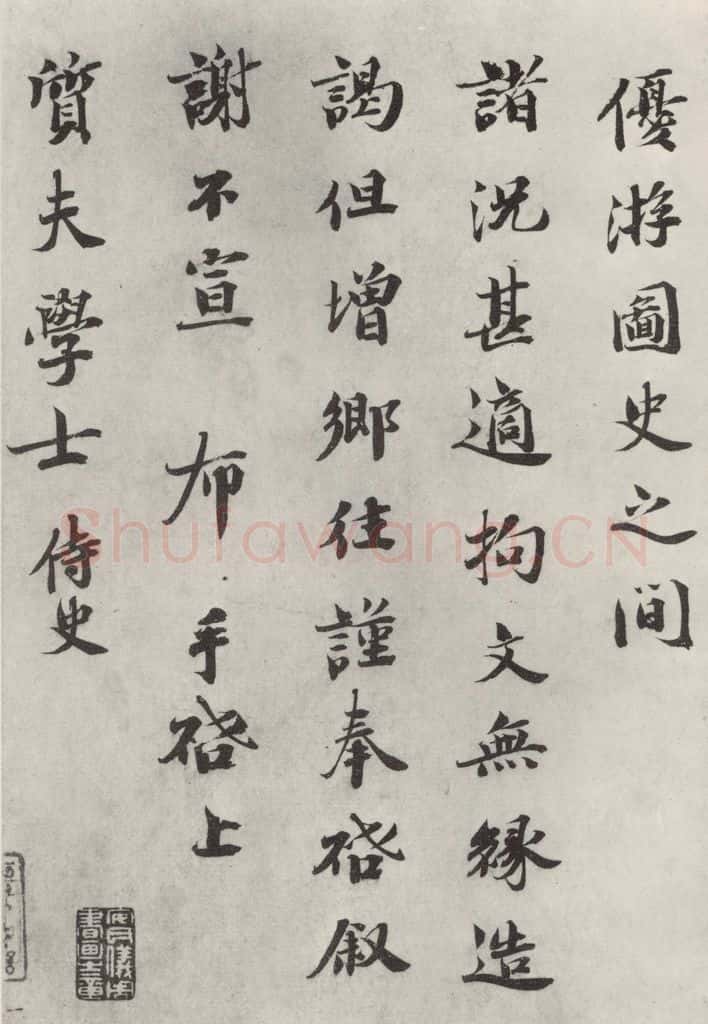 優游圖史之間
諸況甚適拘文無緣造
謁但增鄉往謹奉啓叙
謝不宣 布 手啓上
質夫學士 侍史
Shufawang.CN